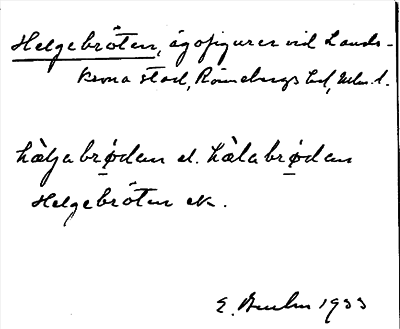 Helgebröten, ägofigurer vid Lands-
krona stad, Rönnebergs hd, Mlm. l.
hàlja brødan el. hàla brødan
Helgebröten ek.
E. 1933